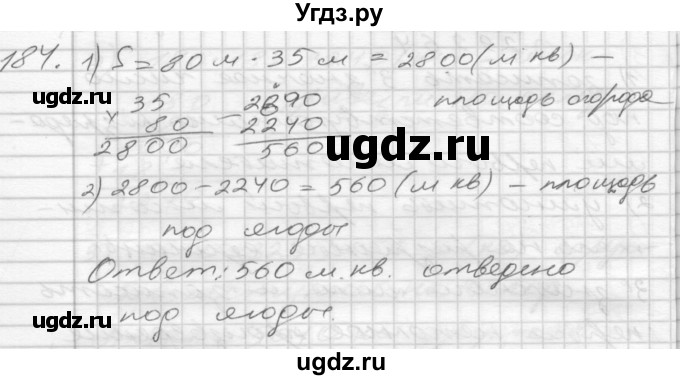 Угдз.ру
184. 1) S = 80 м · 35 м = 2800 (м кв) –
ugdz.ru ugdz.ru
площадь огорода
35
× 80
2800
–
2240
560
ugdz.ru
2) 2800 – 2240 = 560 (м кв) – площадь
под ягоды
Ответ: 560 м. кв. отведено
под ягоды.
ugdz.ru ugdz.ru